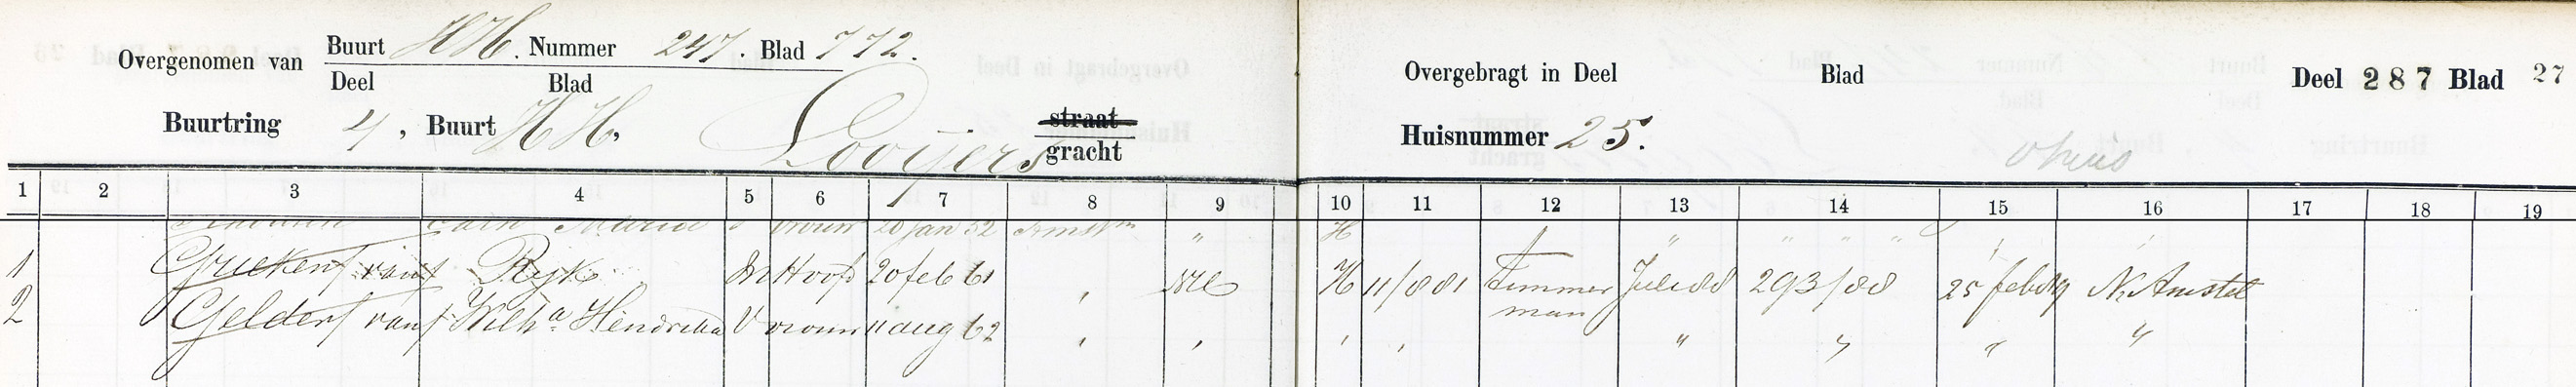 Overgenomen van Buurt HH. Nummer 247. Blad 772.
Deel Blad
Overgebragt in Deel Blad Deel 287 Blad 27
Buurtring 4, Buurt HH. Looijers straat
gracht
Huisnummer 25.
1 2 3 4 5 6 7 8 9 10 11 12 13 14 15 16 17 18 19
Maria vrouw 20 jan 52 Amstm " H " " " "
1 Grieken (van) Ryk M Hoofd 20 feb 61 " NH H 11/881 Timmer Juli 88 293/88 25 feb N. Amstel
man
2 Gelder (van) Wilha Hendrika V vrouw 11 aug 62 " " " " " " " "